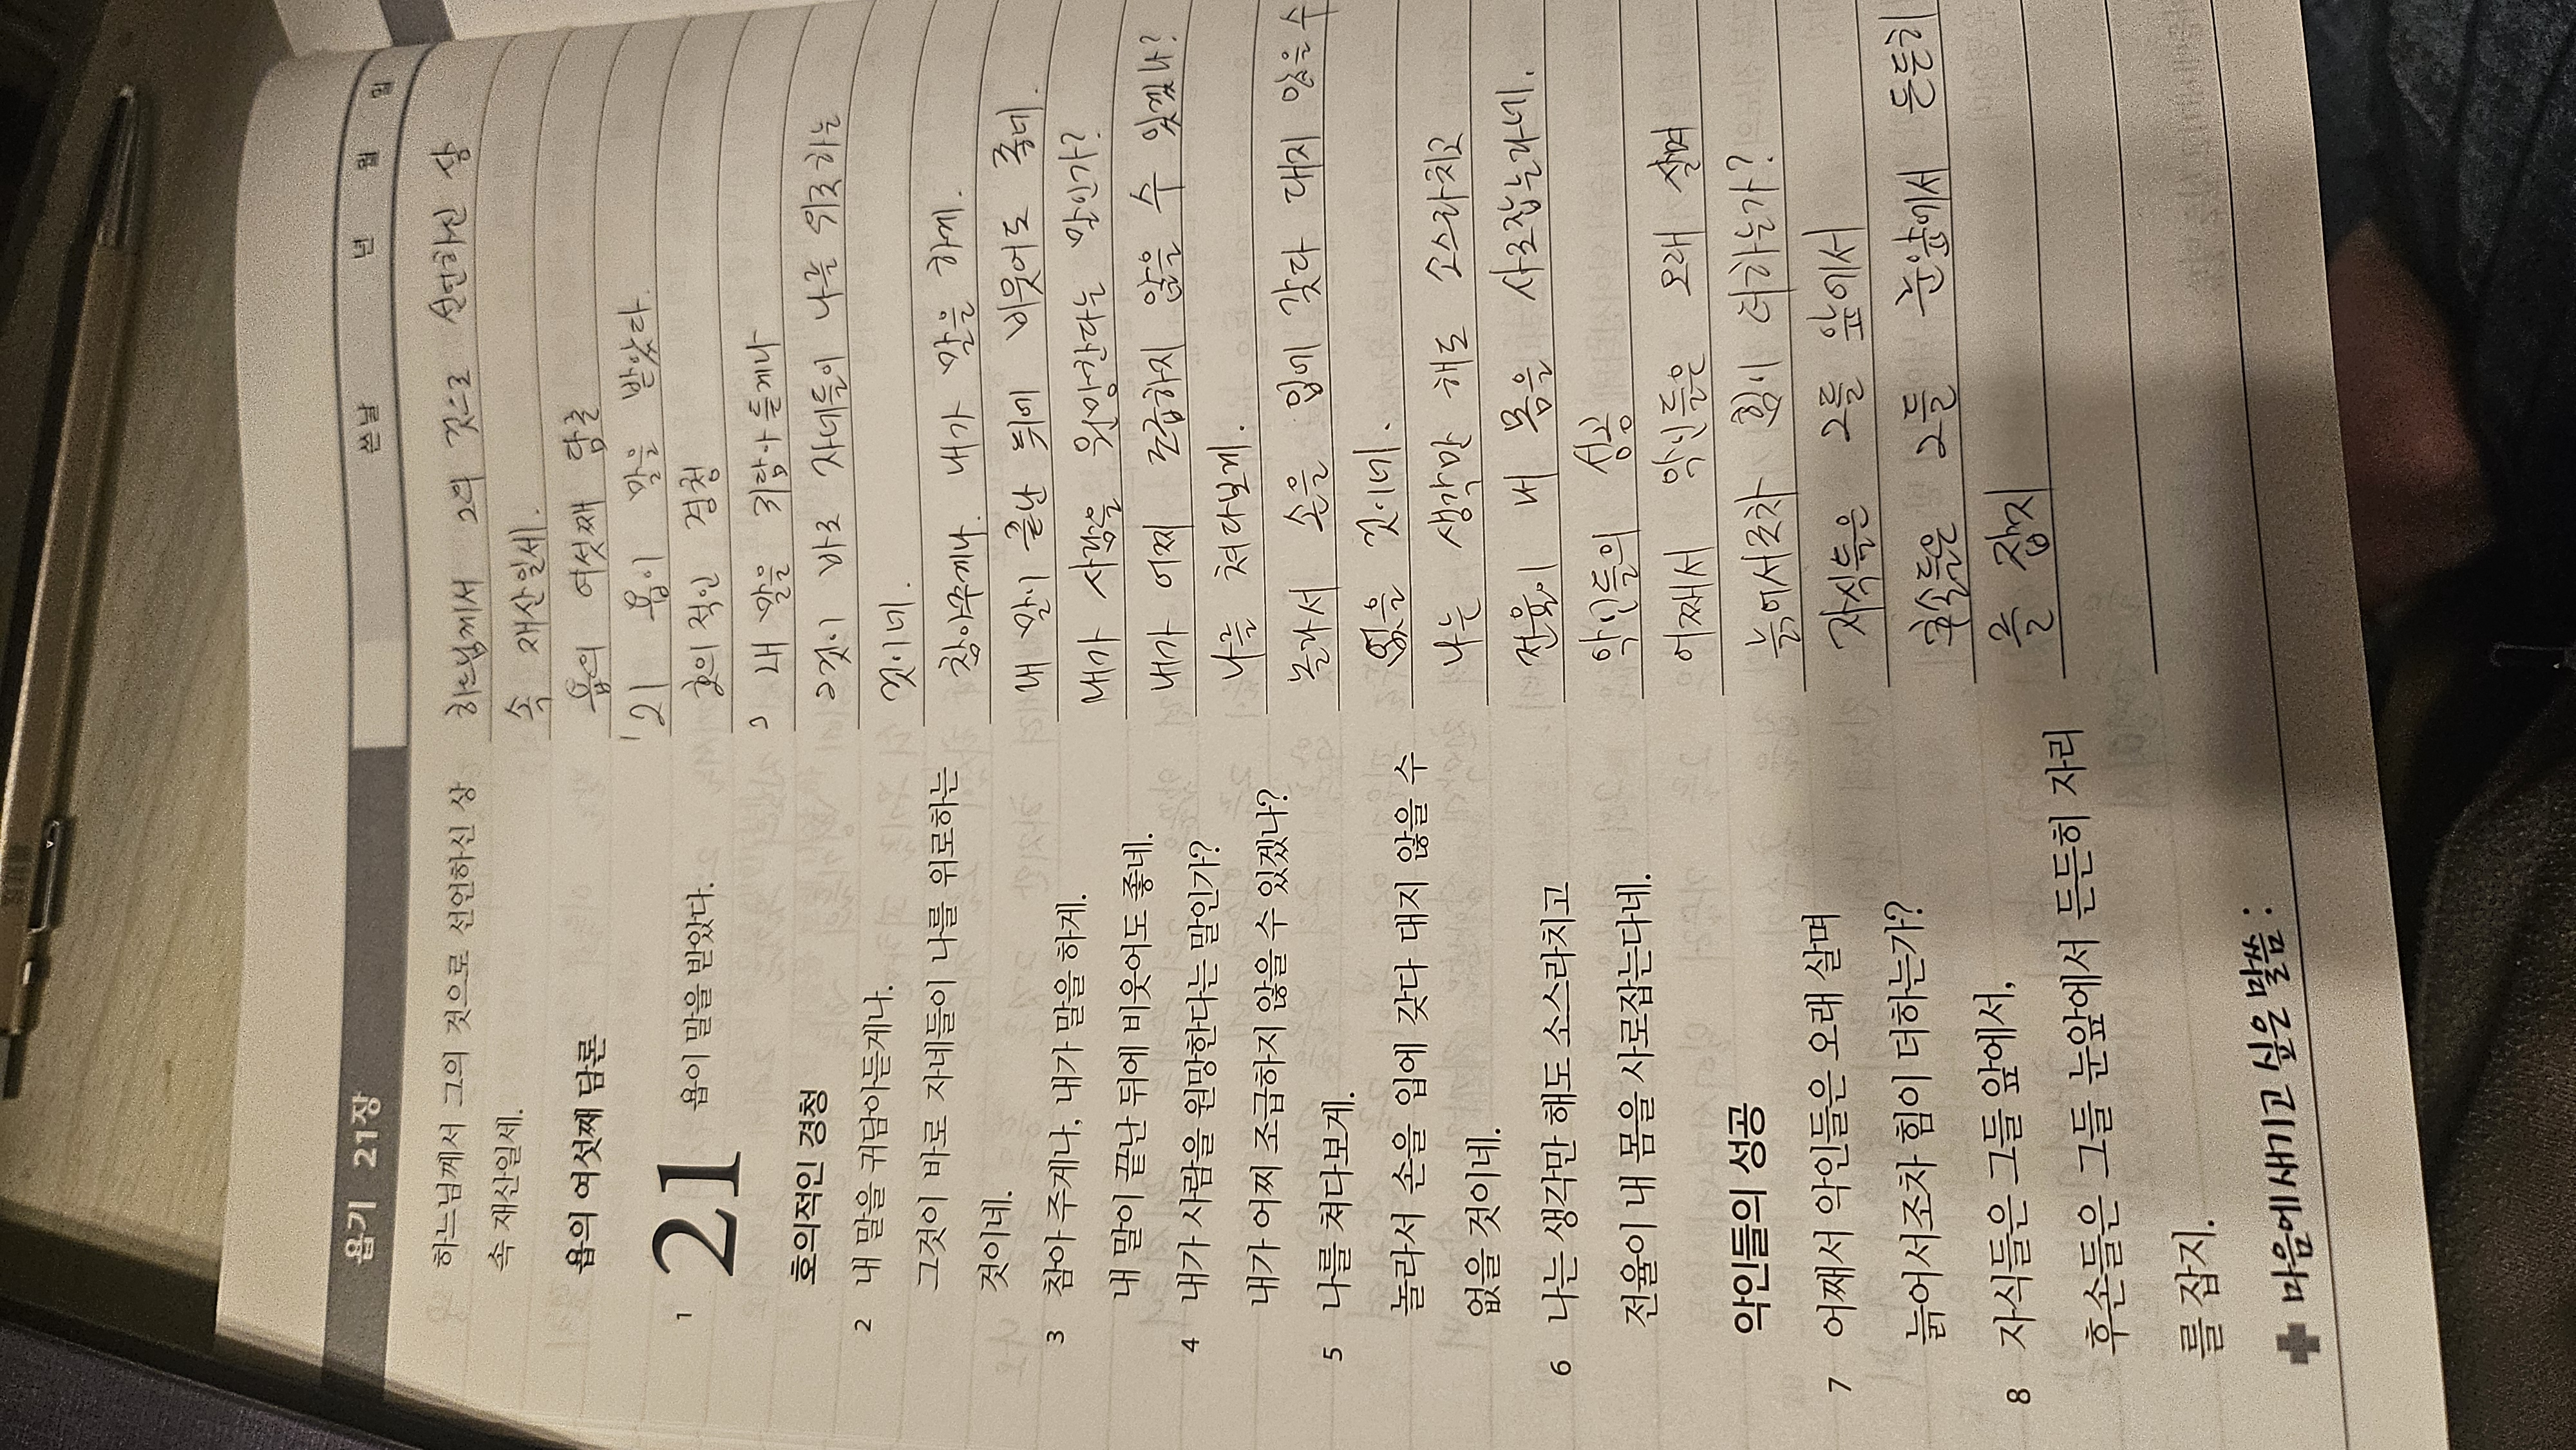 욥기 21장
하느님께서 그의 것으로 선언하신 상
속 재산일세.
욥의 여섯째 담론
1 21 욥이 말을 받았다.
호의적인 경청
2 내 말을 귀담아듣게나.
그것이 바로 자네들이 나를 위로하는
것이네.
3 참아 주게나, 내가 말을 하게.
내 말이 끝난 뒤에 비웃어도 좋네.
4 내가 사람을 원망한다는 말인가?
내가 어찌 조급하지 않을 수 있겠나?
5 나를 쳐다보게.
놀라서 손을 입에 갖다 대지 않을 수
없을 것이네.
6 나는 생각만 해도 소스라치고
전율이 내 몸을 사로잡는다네.
악인들의 성공
7 어째서 악인들은 오래 살며
늙어서조차 힘이 더하는가?
8 자식들은 그들 앞에서,
후손들은 그들 눈앞에서 든든히 자리
를 잡지.
마음에 새기고 싶은 말씀 :
쓴날 년 월 일
하느님께서 그의 것으로 선언하신 상
속 재산일세.
욥의 여섯째 담론
21 욥이 말을 받았다.
호의적인 경청
내 말을 귀담아듣게나
그것이 바로 자네들이 나를 위로하는
것이네.
참아주게나. 내가 말을 하게.
내 말이 끝난 뒤에 비웃어도 좋네.
내가 사람을 원망한다는 말인가?
내가 어찌 조급하지 않을 수 있겠나?
나를 쳐다보게.
놀라서 손을 입에 갖다 대지 않을 수
없을 것이네.
나는 생각만 해도 소스라치고
전율이 내 몸을 사로잡는다네.
악인들의 성공
어째서 악인들은 오래 살며
늙어서조차 힘이 더하는가?
자식들은 그들 앞에서
후손들은 그들 눈앞에서 든든히
를 잡지